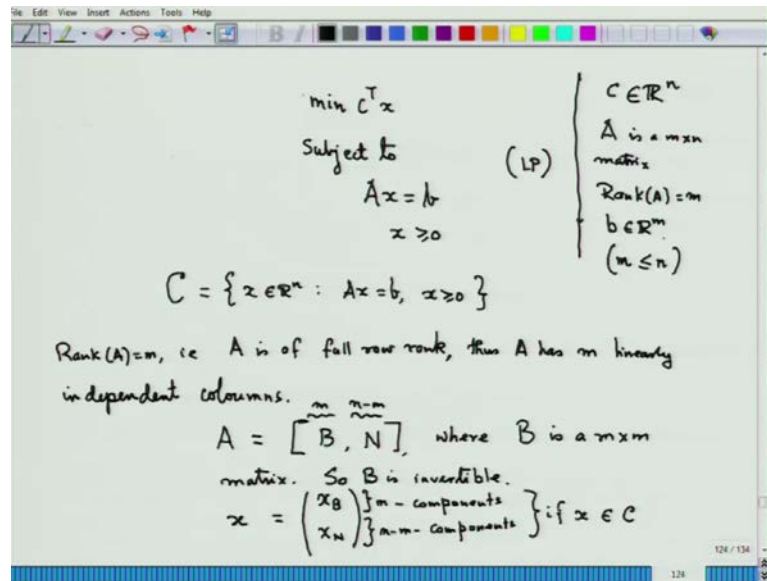 File Edit View Insert Actions Tools Help
min Cᵀx
Subject to
Ax = b
x ≥ 0
(LP)
C ∈ ℝⁿ
A is a m×n
matrix
Rank(A) = m
b ∈ ℝᵐ
(m ≤ n)
C = { x ∈ ℝⁿ : Ax = b, x ≥ 0 }
Rank(A) = m, ie A is of full row rank, thus A has m linearly
independent coloumns.
m n-m
A = [ B, N ], where B is a m×m
matrix. So B is invertible.
x = ( x_B } m - components
x_N ) } n-m- components } if x ∈ C
124 / 134
124